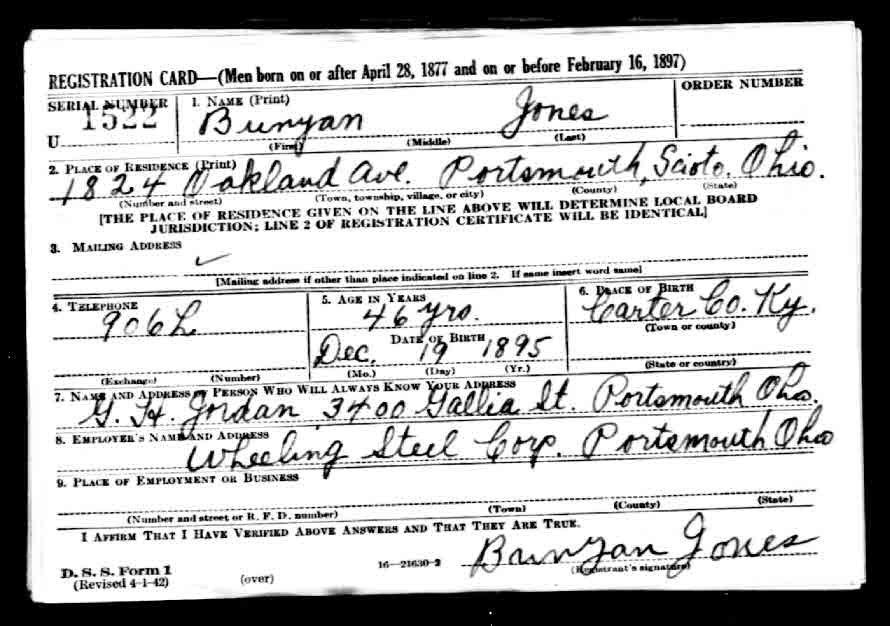 REGISTRATION CARD—(Men born on or after April 28, 1877 and on or before February 16, 1897)
SERIAL NUMBER 1. NAME (Print) ORDER NUMBER
U 1522 Bunyan Jones
(First) (Middle) (Last)
2. PLACE OF RESIDENCE (Print)
1824 Oakland Ave. Portsmouth, Scioto, Ohio.
(Number and street) (Town, township, village, or city) (County) (State)
[THE PLACE OF RESIDENCE GIVEN ON THE LINE ABOVE WILL DETERMINE LOCAL BOARD
JURISDICTION; LINE 2 OF REGISTRATION CERTIFICATE WILL BE IDENTICAL]
3. MAILING ADDRESS
✓
[Mailing address if other than place indicated on line 2. If same insert word same]
4. TELEPHONE 5. AGE IN YEARS 6. PLACE OF BIRTH
906L 46 yrs. Carter Co. Ky.
DATE OF BIRTH (Town or county)
Dec. 19 1895
(Exchange) (Number) (Mo.) (Day) (Yr.) (State or country)
7. NAME AND ADDRESS OF PERSON WHO WILL ALWAYS KNOW YOUR ADDRESS
G. H. Jordan 3400 Gallia St. Portsmouth Ohio.
8. EMPLOYER'S NAME AND ADDRESS
Wheeling Steel Corp. Portsmouth Ohio
9. PLACE OF EMPLOYMENT OR BUSINESS
(Number and street or R. F. D. number) (Town) (County) (State)
I AFFIRM THAT I HAVE VERIFIED ABOVE ANSWERS AND THAT THEY ARE TRUE.
Bunyan Jones
D. S. S. Form 1 (over) 16—21630-2 (Registrant's signature)
(Revised 4-1-42)